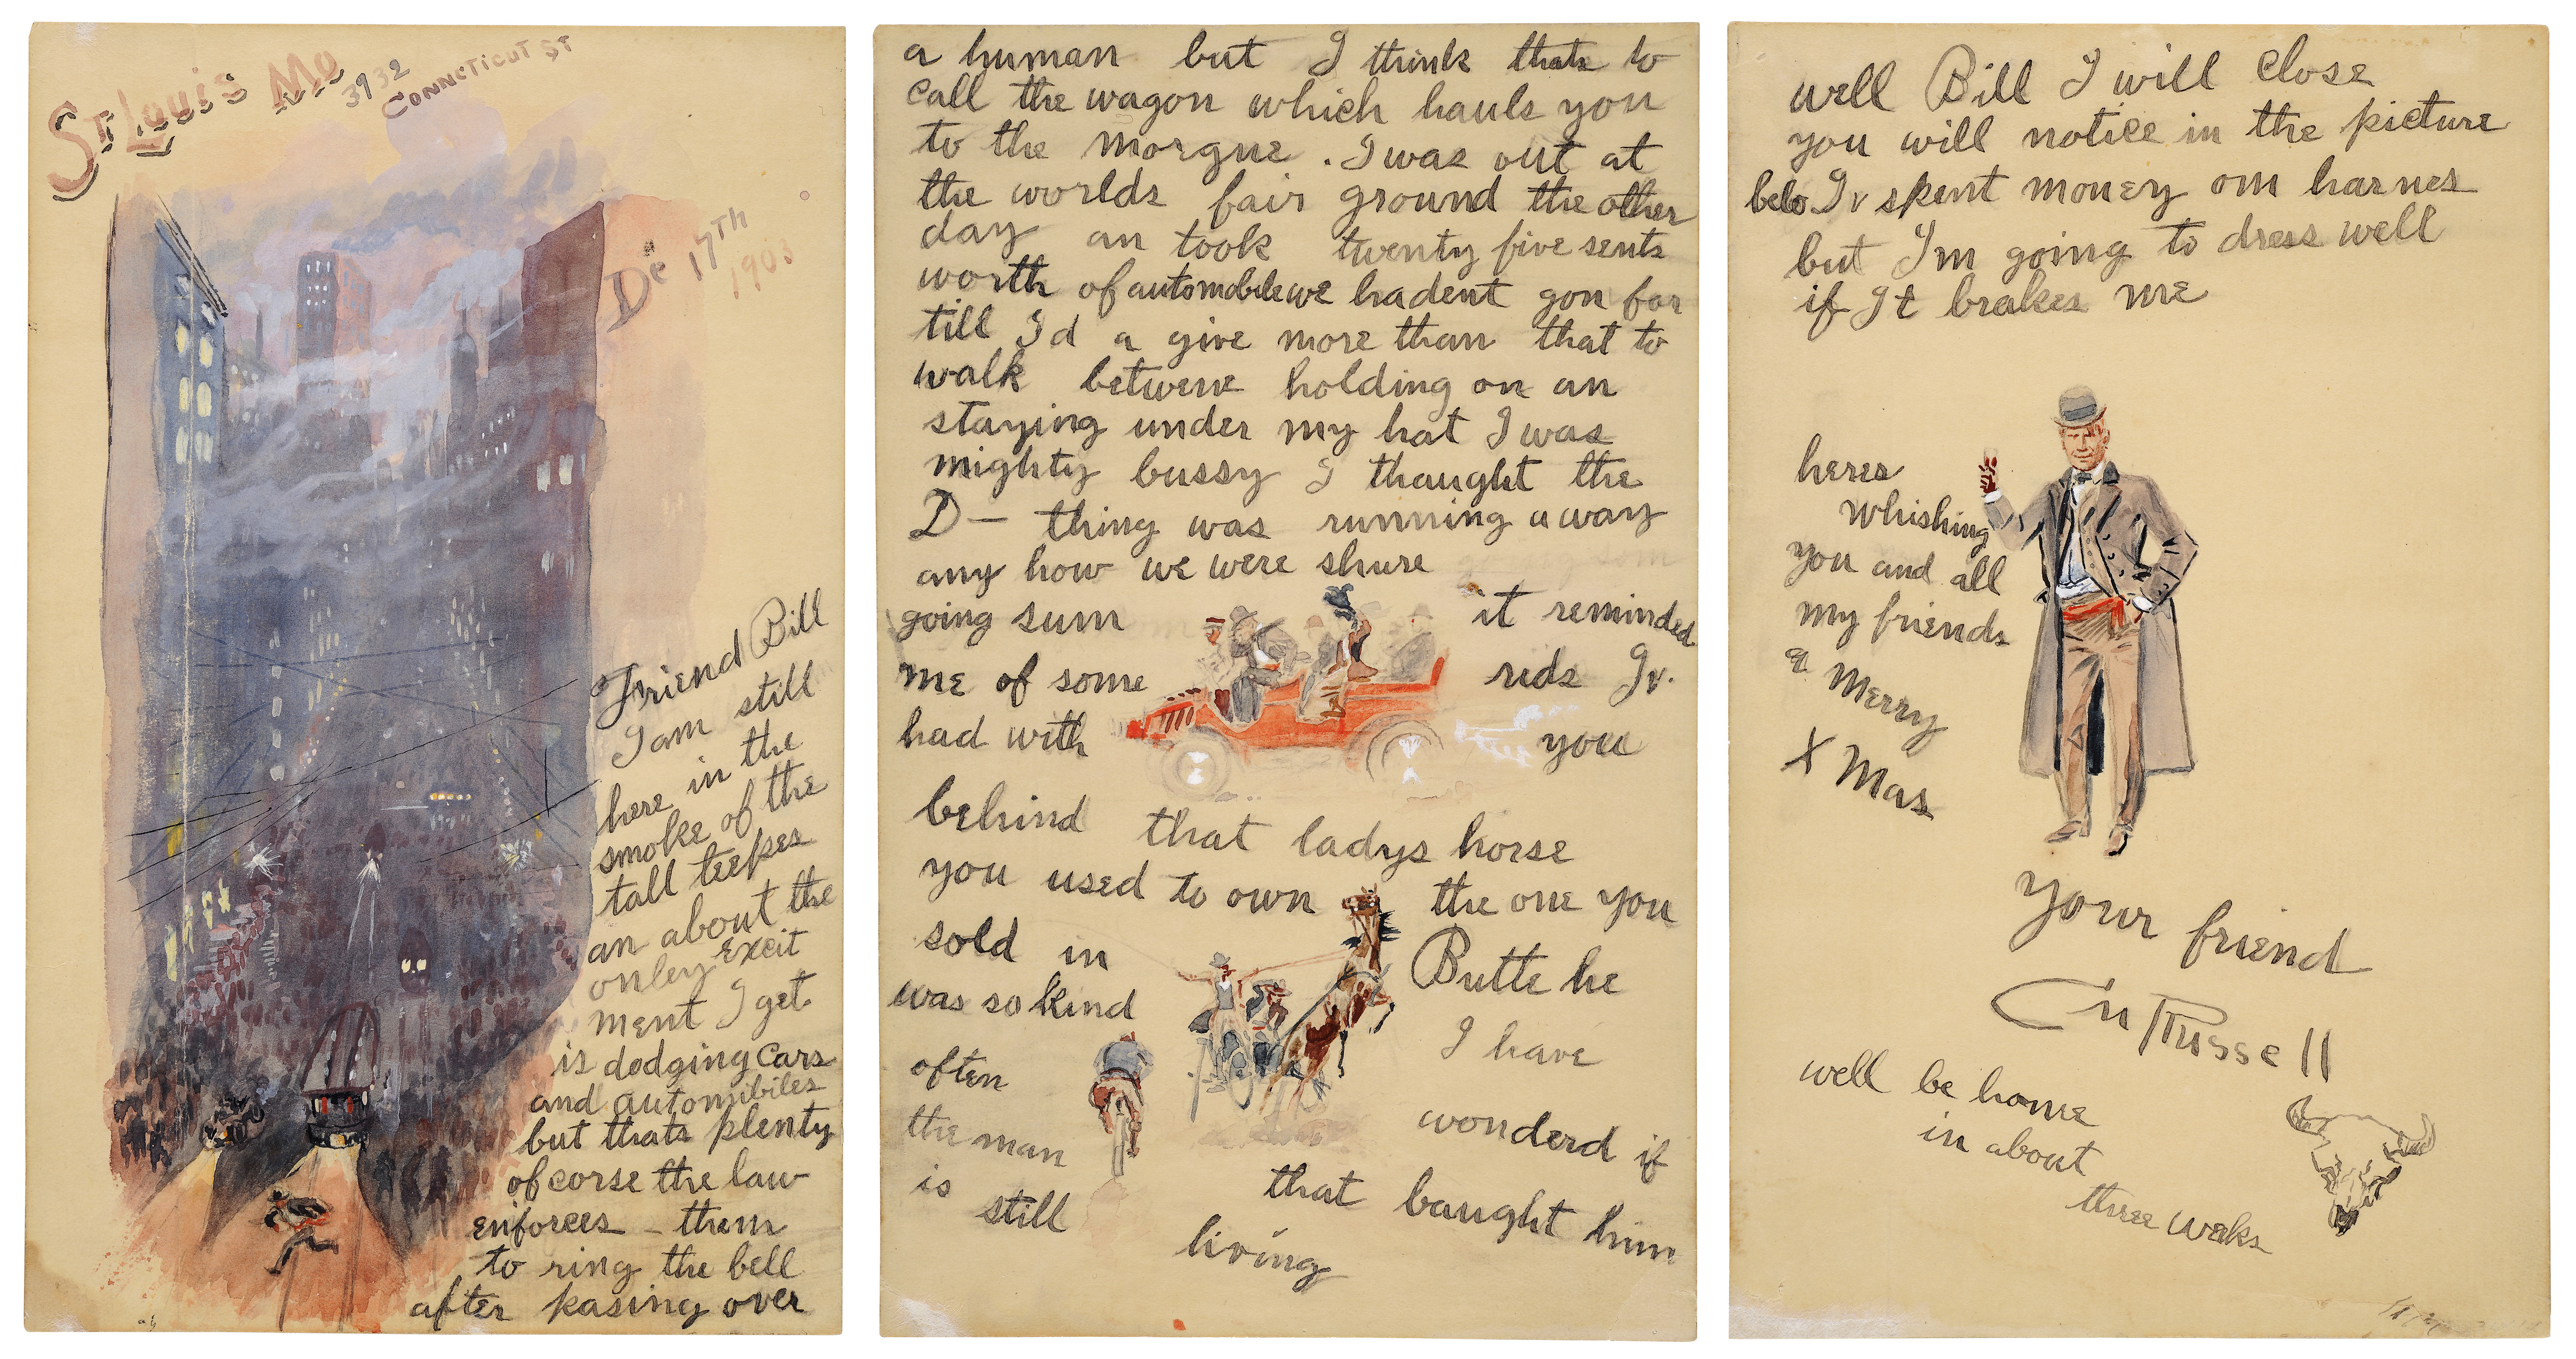 St Louis Mo
3932
Connecticut St
De 17th
1903
Friend Bill
I am still
here in the
smoke of the
tall teepes
an about the
onley excit
ment I get
is dodging cars
and automibiles
but thats plenty
of corse the law
enforces them
to ring the bell
after pasing over
a human but I think thats to
call the wagon which hauls you
to the morgue. I was out at
the worlds fair ground the other
day an took twenty five sents
worth of automobile we hadent gon far
till Id a give more than that to
walk betwene holding on an
staying under my hat I was
mighty bussy I thaught the
D— thing was running away
any how we were shure
going sum it reminded
me of some rids Iv.
had with you
behind that ladys horse
you used to own the one you
sold in Butte he
was so kind I have
often wonderd if
the man that baught him
is still living
well Bill I will close
you will notice in the picture
belo Iv spent money om harnes
but I'm going to dress well
if It brakes me
heres
whishing
you and all
my friends
a Merry
X Mas
your friend
CM Russell
well be home
in about
three weaks